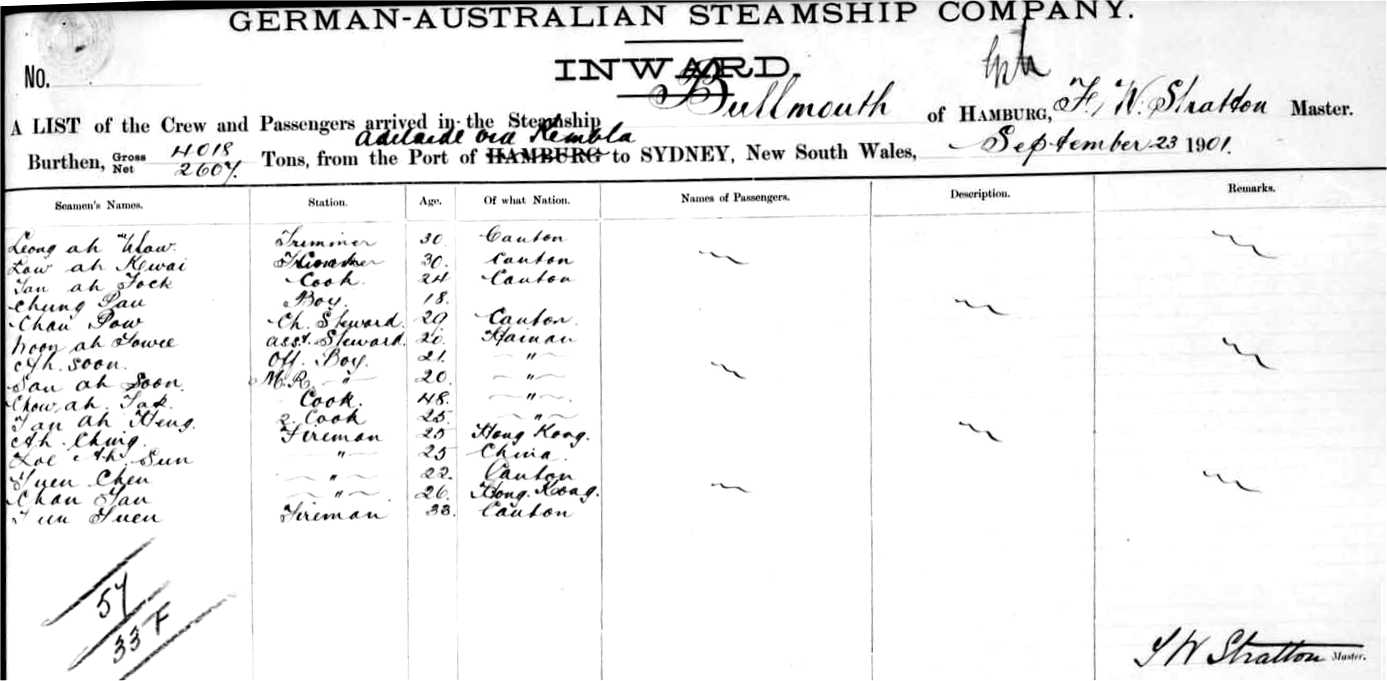 GERMAN-AUSTRALIAN STEAMSHIP COMPANY.
INWARD.
No.
A LIST of the Crew and Passengers arrived in the Steamship Bullmouth of HAMBURG, F. W. Stratton Master.
Adelaide via Kembla
Burthen, Gross 4018 Net 2607 Tons, from the Port of HAMBURG to SYDNEY, New South Wales, September 23 1901.
Seamen's Names. Station. Age. Of what Nation. Names of Passengers. Description. Remarks.
Leong ah Trimmer 30. Canton
Low ah Kewai 30. Canton
Tan ah Fock Cook 24 Canton
Chung Pau Boy. 18.
Chau Pow Ch. Steward. 29 Canton.
ah Asst. Steward. 20. Hainan
Ah Soon. Off. Boy. 21. "
San ah Soon. M. R. " 20. "
Chow ah Tak. Cook. 48. "
Tan ah Heng. 2. Cook 25. "
Ah Ching. Fireman 25 Hong Kong.
Ah Sun " 25 China.
Yuen Chen " 22. Canton
Chan Yau " 26. Hong Kong.
Yuen Fireman 33. Canton
57
33 F
F W Stratton Master.